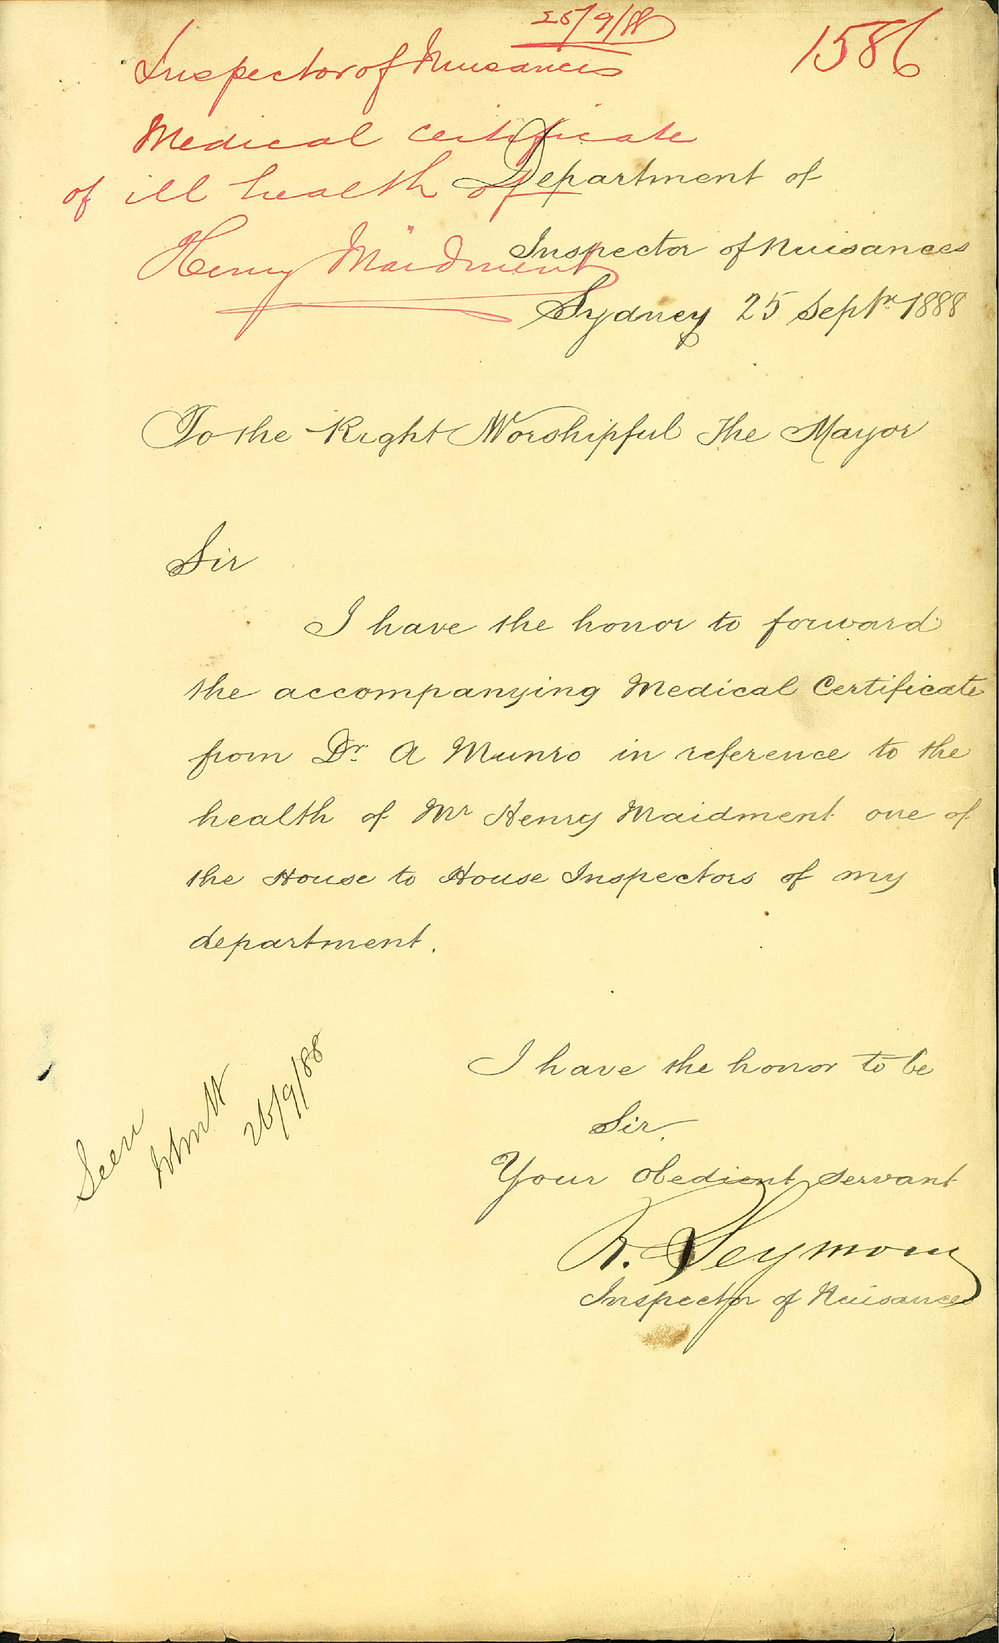 25/9/88
1586
Inspector of Nuisances
Medical Certificate
of ill health of
Henry Maidment
Department of
Inspector of Nuisances
Sydney 25 Septr 1888
To the Right Worshipful The Mayor
Sir
I have the honor to forward
the accompanying Medical Certificate
from Dr. A Munro in reference to the
health of Mr Henry Maidment one of
the House to House Inspectors of my
department.
I have the honor to be
Sir,
Your obedient servant
R. Seymour
Inspector of Nuisances
Seen
26/9/88